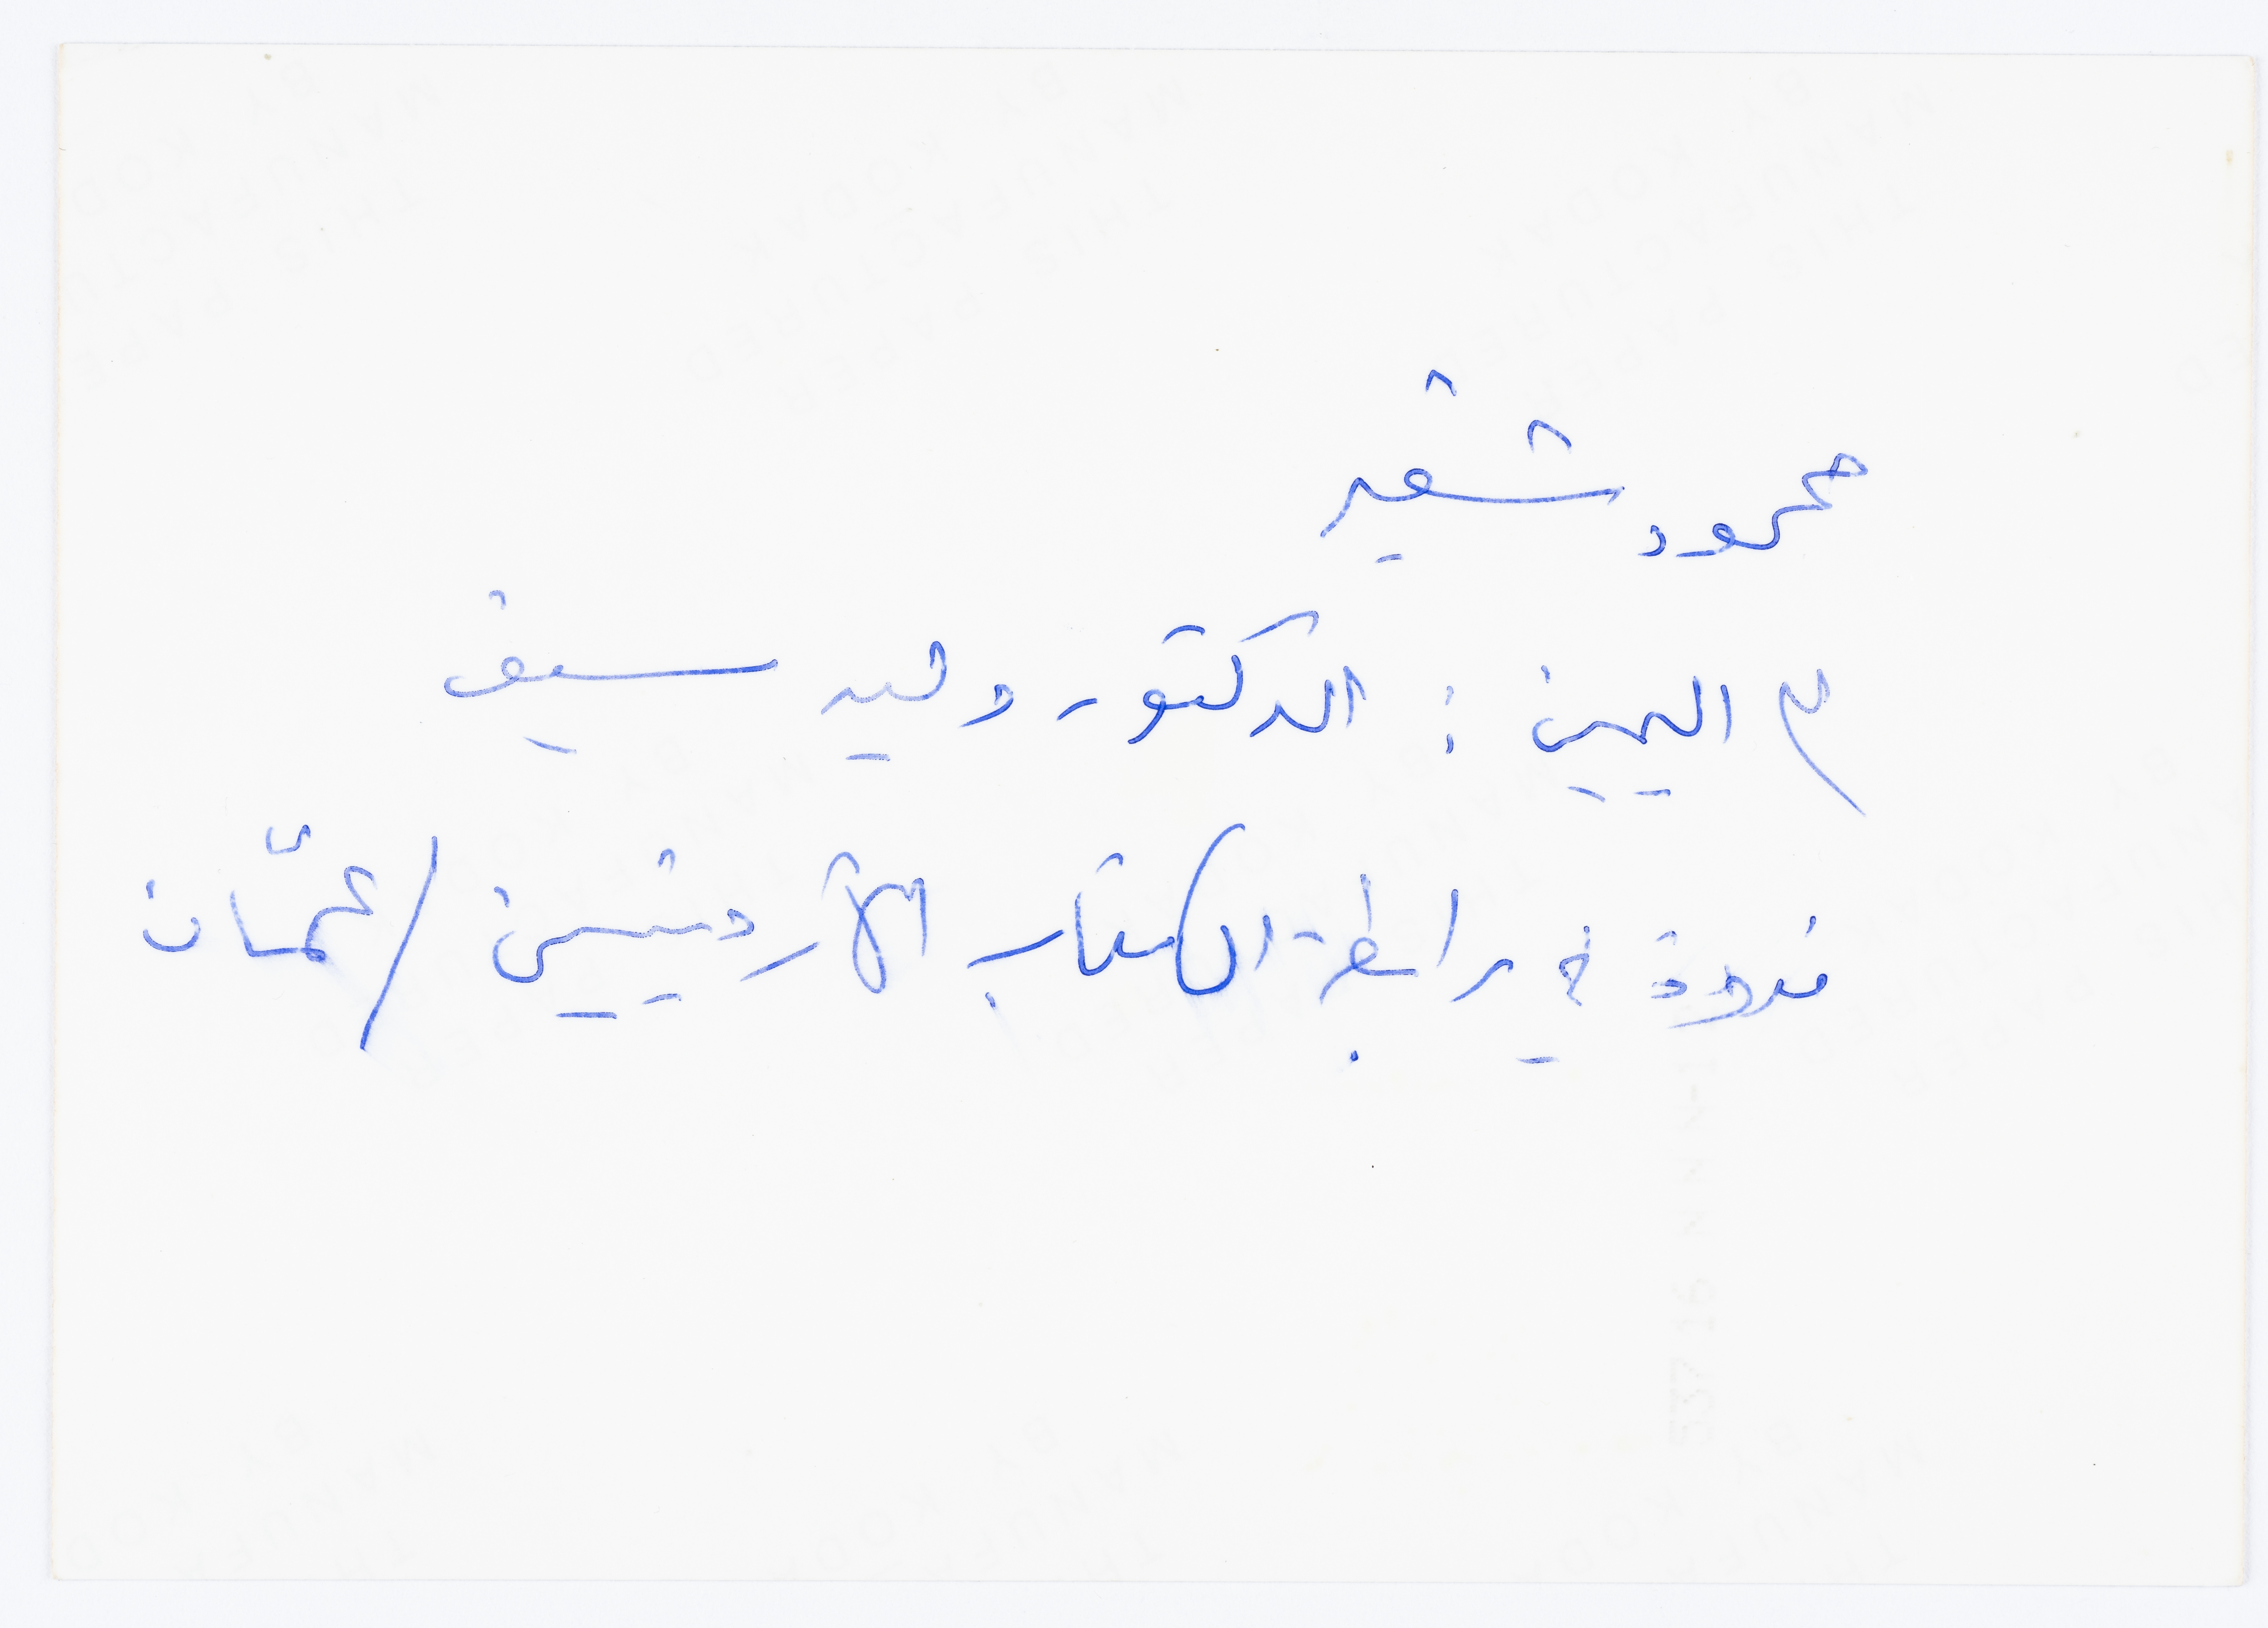 محمود شقير
من اليمين : الدكتور وليد سيف
ندوة في رابطة الكتاب الأردنيين / عمّان